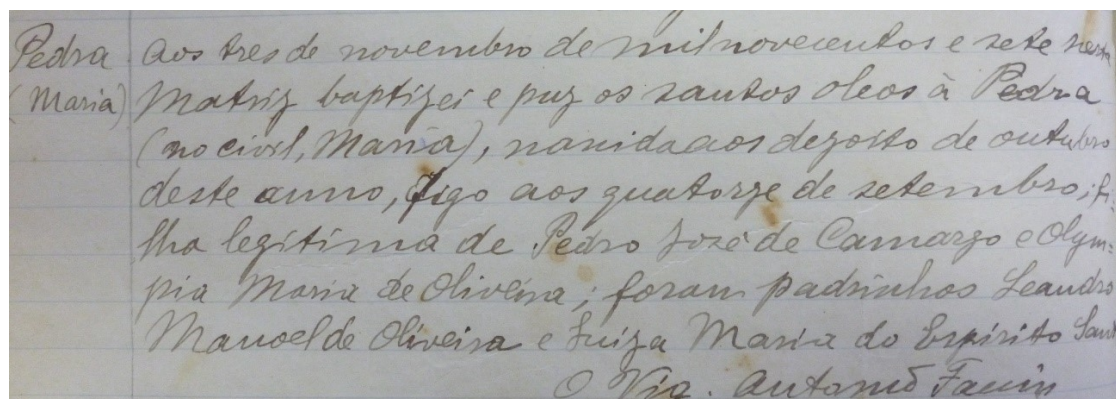 Pedra
(Maria)
Aos tres de novembro de mil novecentos e sete nesta
Matriz baptizei e puz os santos oleos à Pedra
(no civil, Maria), nascida aos dezoito de outubro
deste anno, digo aos quatorze de setembro; fi-
lha legitima de Pedro José de Camargo e Olym-
pia Maria de Oliveira; foram padrinhos Leandro
Manoel de Oliveira e Luiza Maria do Espirito Sant
O Vig. Antonio